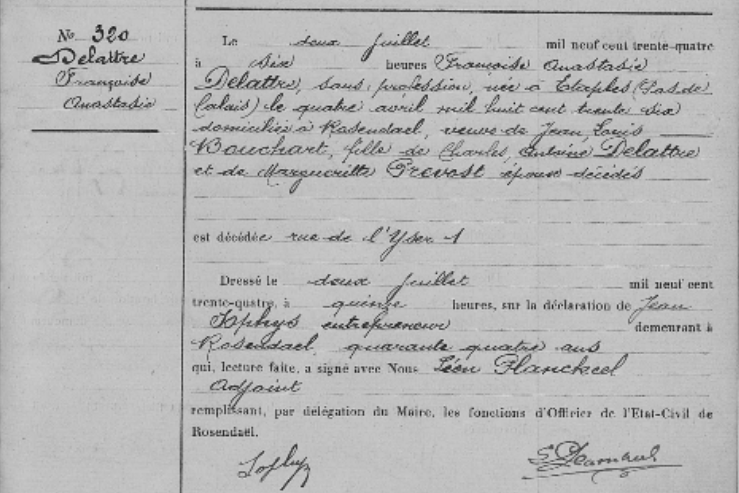 N° 320
Delattre
Françoise
Anastasie
Le deux juillet mil neuf cent trente-quatre
à six heures Françoise Anastasie
Delattre, sans profession, née à Etaples (Pas de
Calais) le quatre avril mil huit cent trente six
domiciliée à Rosendael, veuve de Jean, Louis
Bouchart, fille de Charles, Antoine Delattre
et de Marguerite Prevost époux décédés
est décédée rue de l'Yser 1
Dressé le deux juillet mil neuf cent
trente-quatre, à quinze heures, sur la déclaration de Jean
entrepreneur demeurant à
Rosendael, quarante quatre ans
qui, lecture faite, a signé avec Nous Léon Planckeel
Adjoint
remplissant, par délégation du Maire, les fonctions d'Officier de l'Etat-Civil de
Rosendaël.